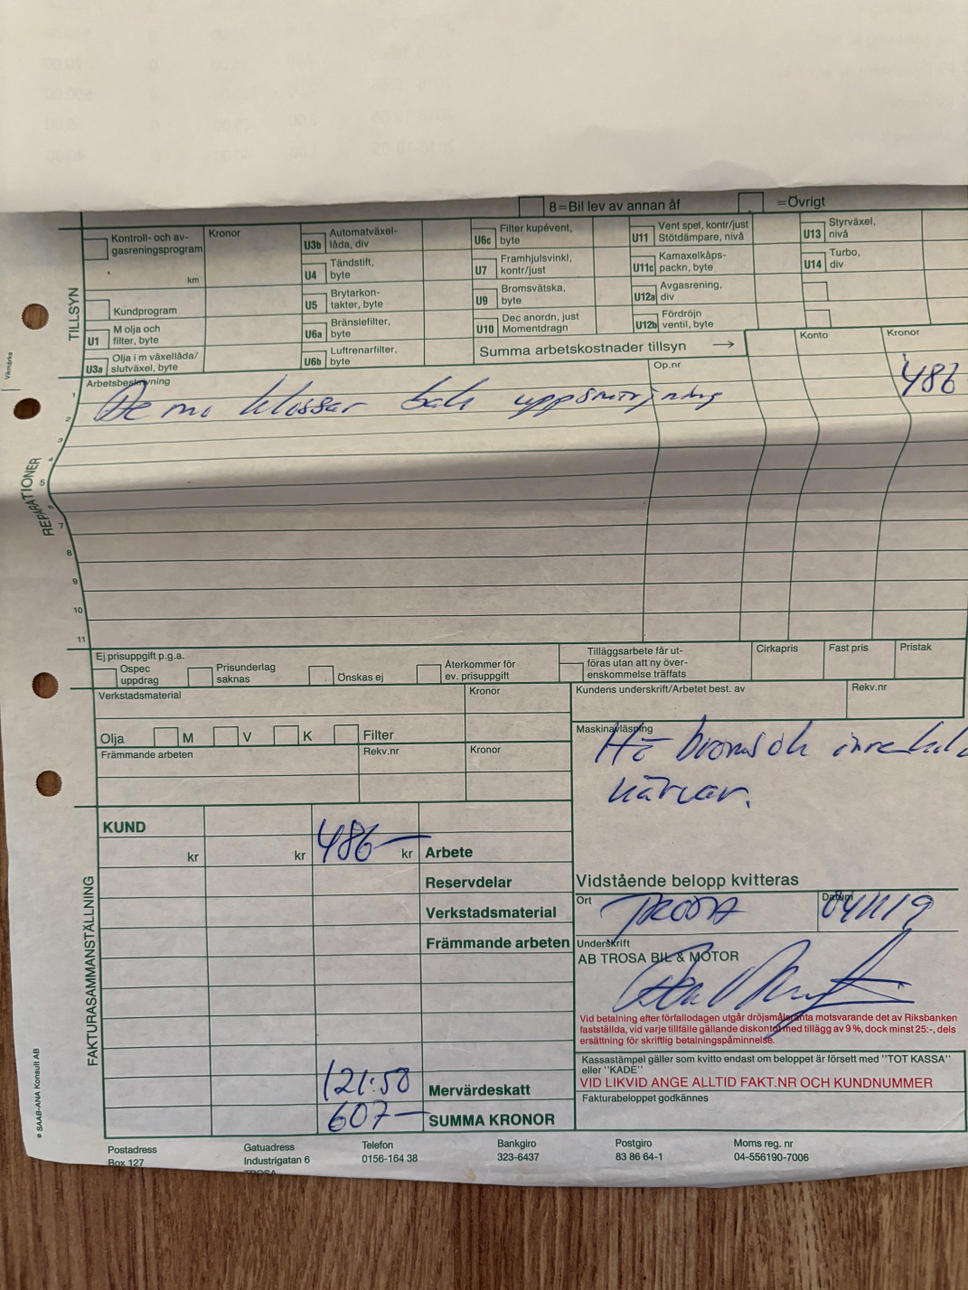 8=Bil lev av annan åf
=Övrigt
TILLSYN
Kontroll- och av-
gasreningsprogram
km
Kronor
Kundprogram
U1 M olja och
filter, byte
U3a Olja i m växellåda/
slutväxel, byte
U3b Automatväxel-
låda, div
U4 Tändstift,
byte
U5 Brytarkon-
takter, byte
U6a Bränslefilter,
byte
U6b Luftrenarfilter,
byte
U6c Filter kupévent,
byte
U7 Framhjulsvinkl,
kontr/just
U9 Bromsvätska,
byte
U10 Dec anordn, just
Momentdragn
U11 Vent spel, kontr/just
Stötdämpare, nivå
U11c Kamaxelkåps-
packn, byte
U12a Avgasrening,
div
U12b Fördröjn
ventil, byte
U13 Styrväxel,
nivå
U14 Turbo,
div
Summa arbetskostnader tillsyn →
Konto
Kronor
Vikmärke
REPARATIONER
Arbetsbeskrivning
Op.nr
1
De mo klossar bak uppsmörjning 486
2
3
4
5
6
7
8
9
10
11
Ej prisuppgift p.g.a.
Ospec
uppdrag
Prisunderlag
saknas
Önskas ej
Återkommer för
ev. prisuppgift
Tilläggsarbete får ut-
föras utan att ny över-
enskommelse träffats
Cirkapris
Fast pris
Pristak
Verkstadsmaterial
Kronor
Kundens underskrift/Arbetet best. av
Rekv.nr
Olja M V K Filter
Främmande arbeten
Rekv.nr
Kronor
Maskinavläsning
Hö bromsok
kärvar.
FAKTURASAMMANSTÄLLNING
KUND
kr
kr
486– kr Arbete
Reservdelar
Verkstadsmaterial
Främmande arbeten
121:50 Mervärdeskatt
607– SUMMA KRONOR
Vidstående belopp kvitteras
Ort TROSA
Datum 041119
Underskrift
AB TROSA BIL & MOTOR
Vid betalning efter förfallodagen utgår dröjsmålsränta motsvarande det av Riksbanken
fastställda, vid varje tillfälle gällande diskontot med tillägg av 9 %, dock minst 25:-, dels
ersättning för skriftlig betalningspåminnelse.
Kassastämpel gäller som kvitto endast om beloppet är försett med "TOT KASSA"
eller "KADE"
VID LIKVID ANGE ALLTID FAKT.NR OCH KUNDNUMMER
Fakturabeloppet godkännes
© SAAB-ANA Konsult AB
Postadress
Box 127
Gatuadress
Industrigatan 6
TROSA
Telefon
0156-164 38
Bankgiro
323-6437
Postgiro
83 86 64-1
Moms reg. nr
04-556190-7006